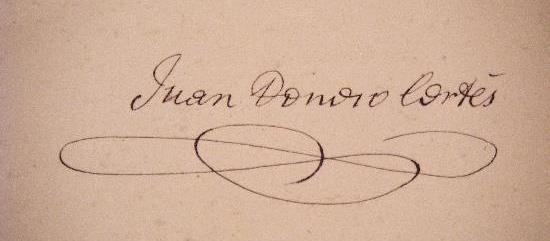 Juan Donoso Cortés